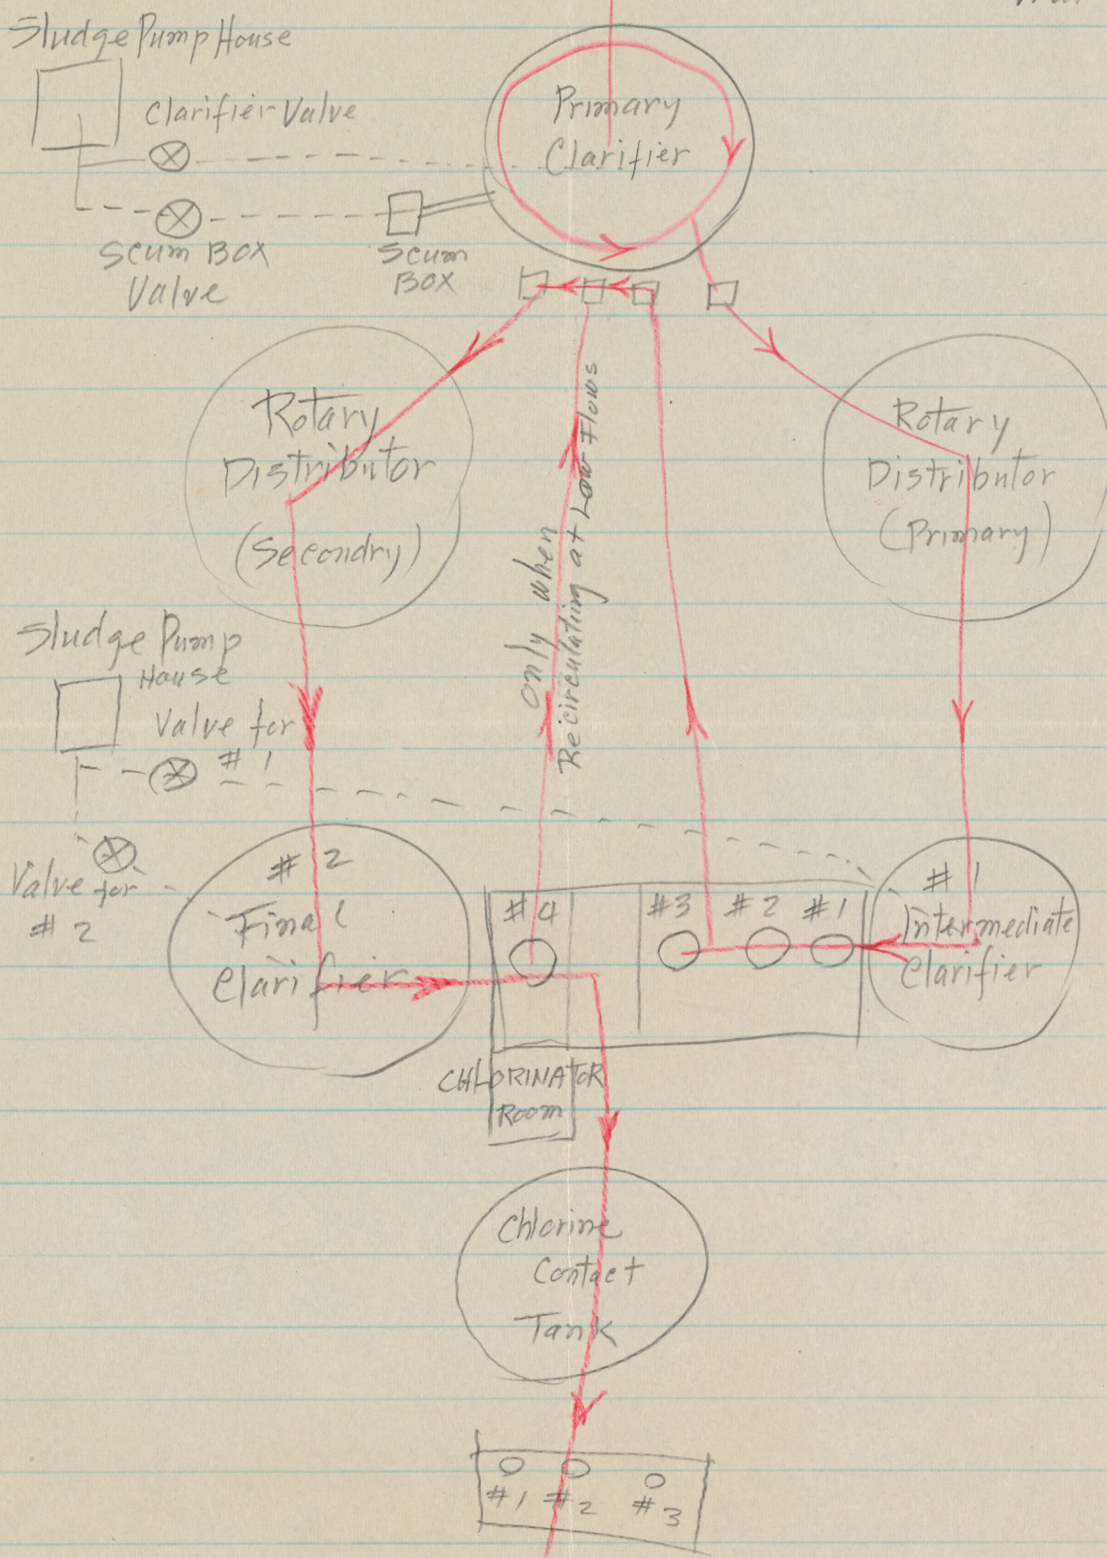 Sludge Pump House
Clarifier Valve
Primary
Clarifier
Scum Box
Valve
Scum
Box
Rotary
Distributor
(Secondry)
Rotary
Distributor
(Primary)
only when
Recirculating at Low Flows
Sludge Pump
House
Valve for
#1
Valve for
#2
#2
Final
Clarifier
#4
#3 #2 #1
#1
Intermediate
Clarifier
CHLORINATOR
Room
Chlorine
Contact
Tank
#1 #2 #3